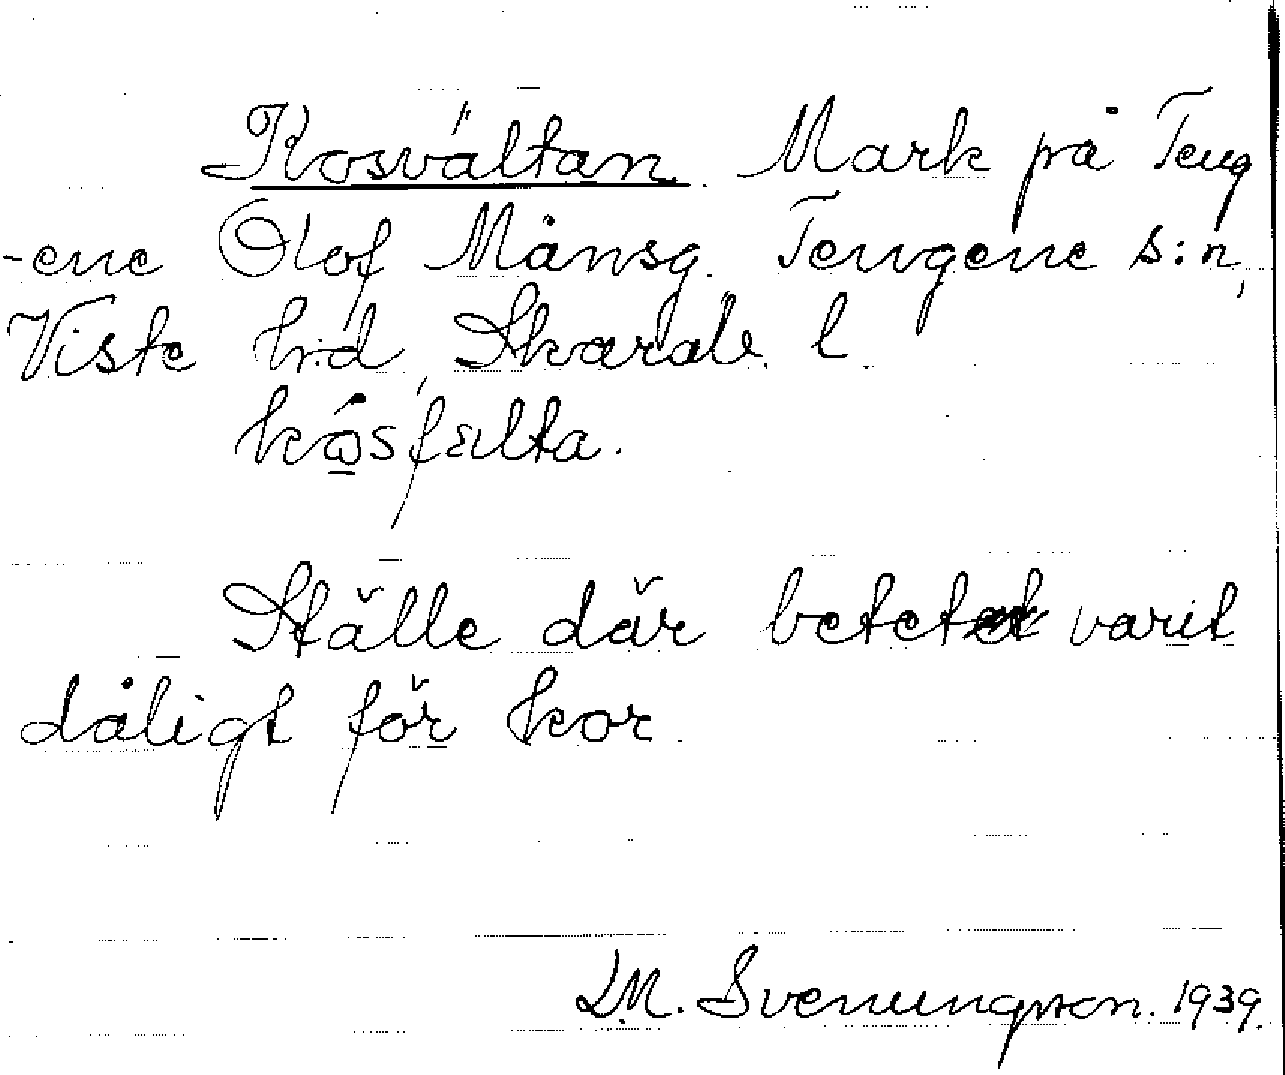 Kosvältan. Mark på Teng
-ene Olof Månsg. Tengene s:n,
Viste hd, Skarab. l
kåsfälta.
Ställe där betet varit
dåligt för kor
L.M. Svenungsson. 1939.